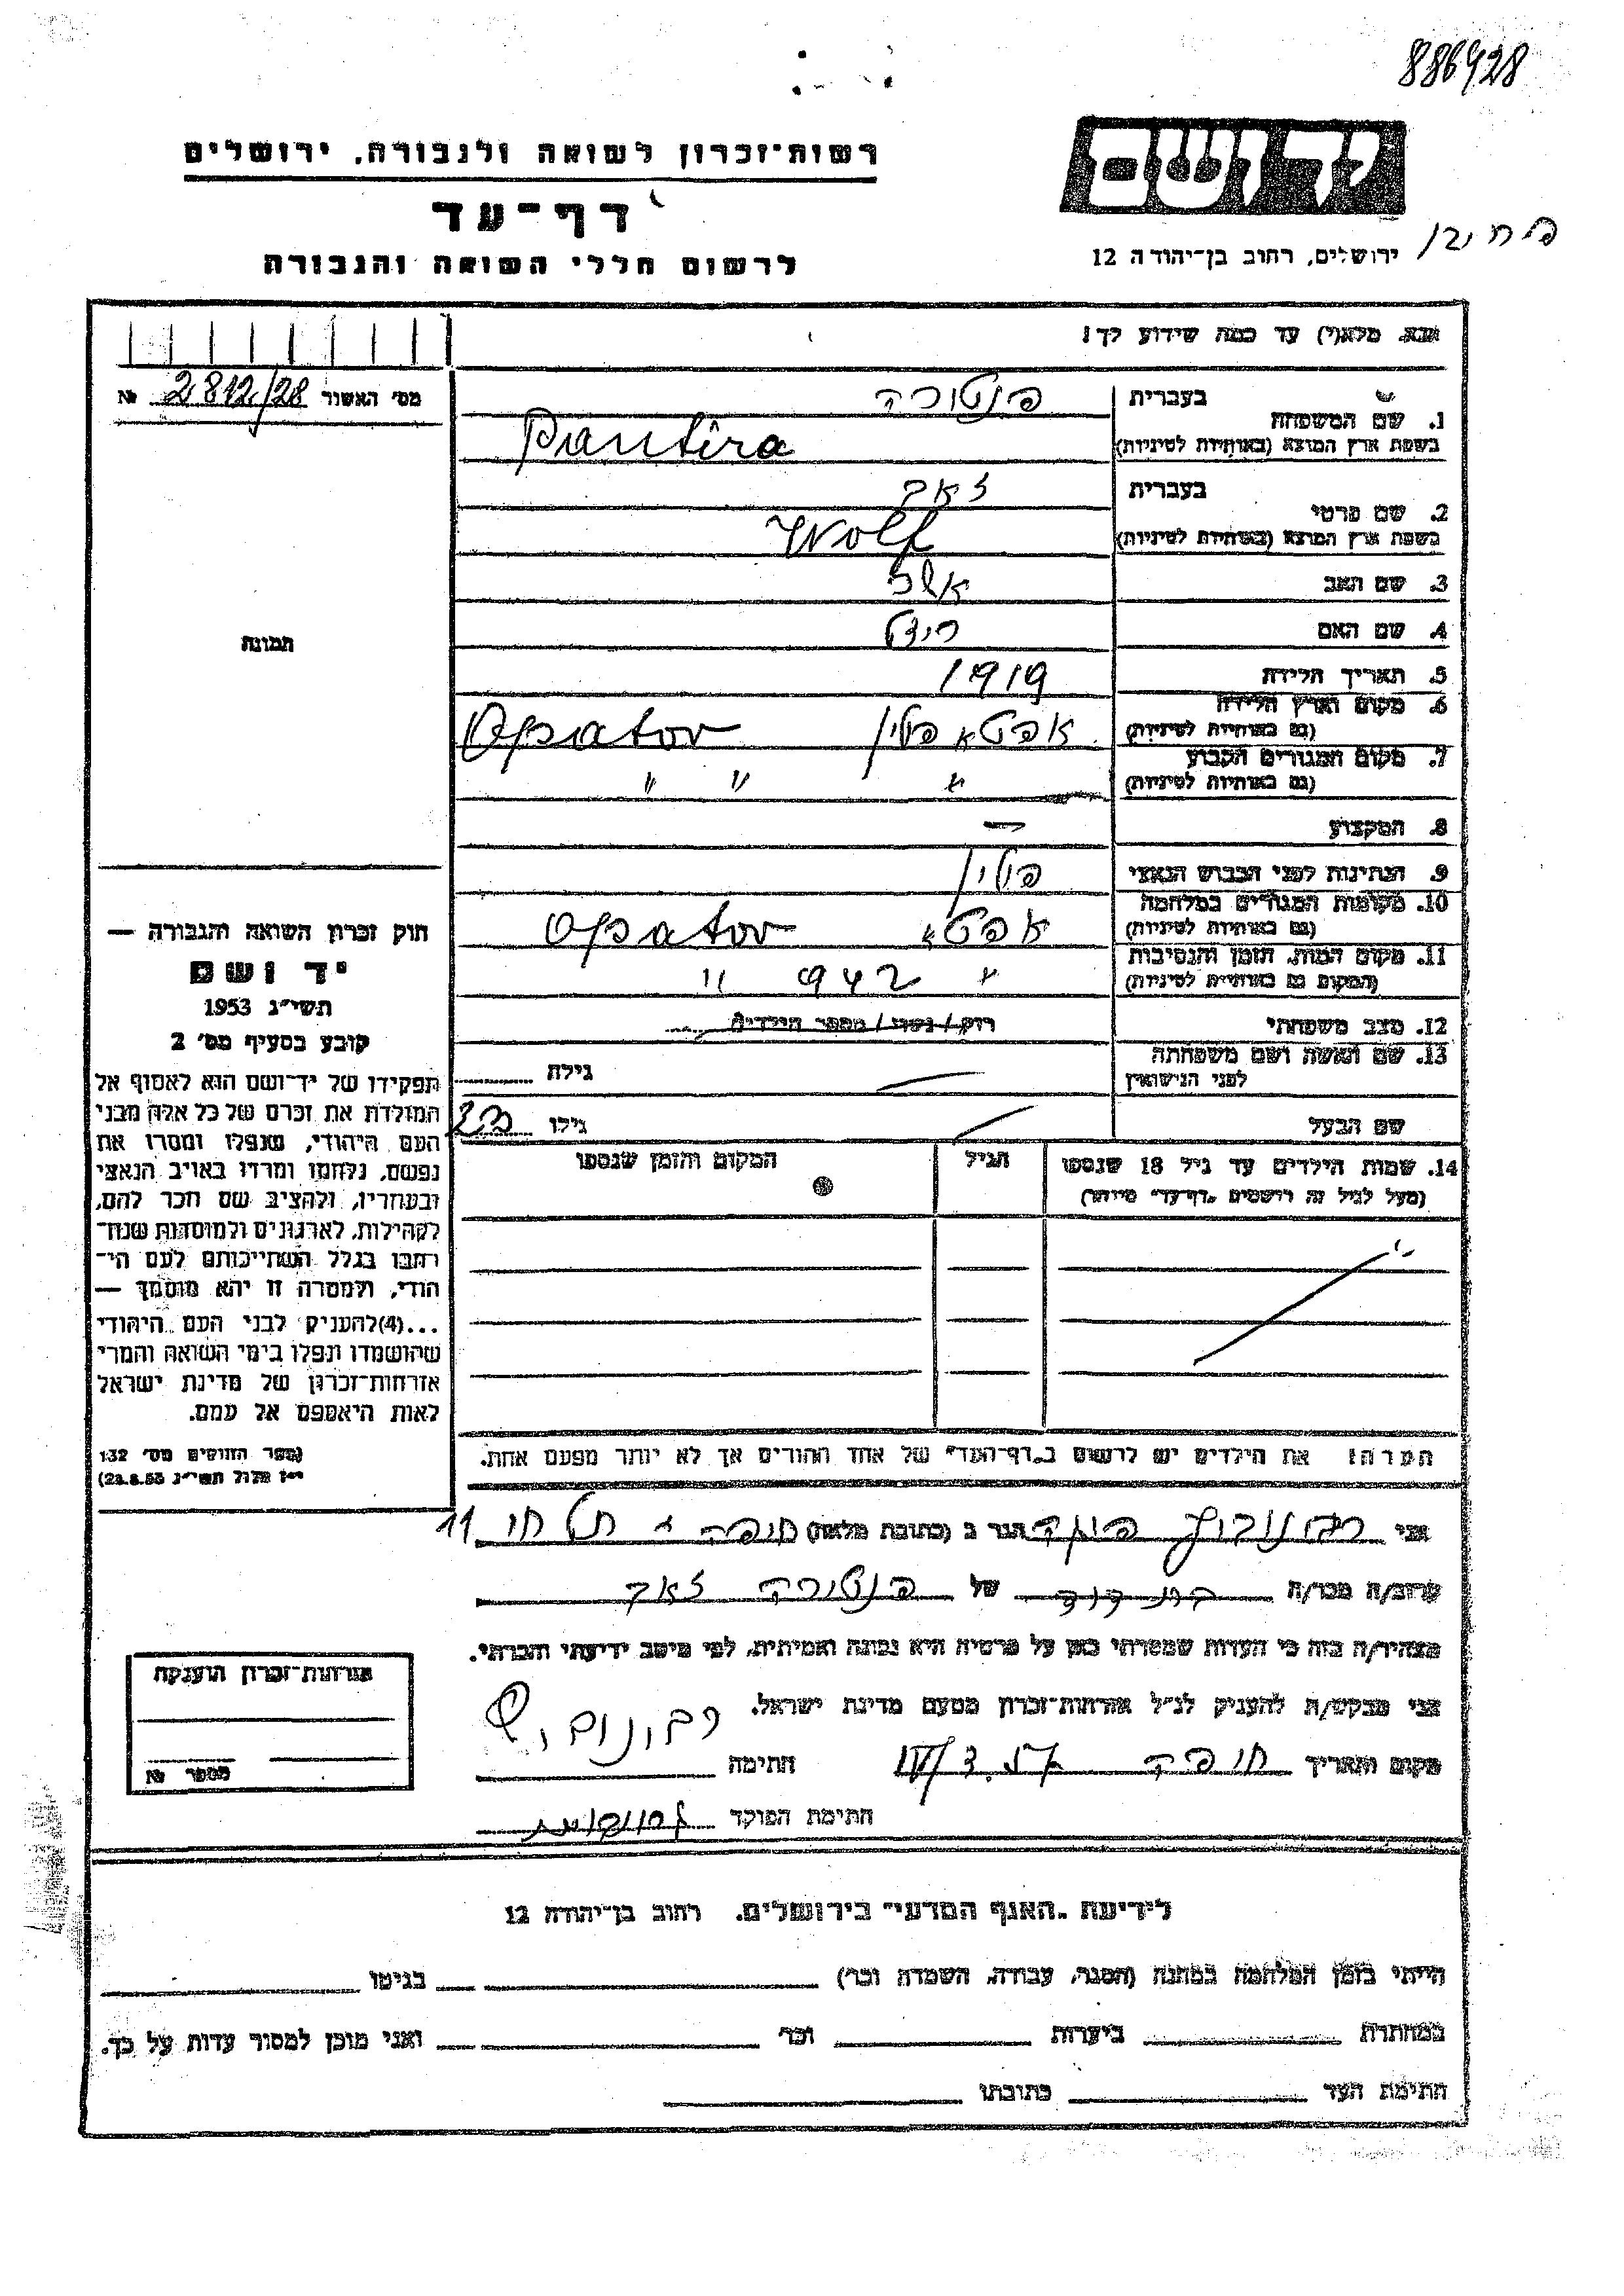 886428
רשות־זכרון לשואה ולגבורה, ירושלים
יד ושם
דף־עד
לרשום חללי השואה והגבורה
ירושלים, רחוב בן־יהודה 12
נא מלא(י) עד כמה שידוע לך!
מס' האשור 2812/28 №
בעברית פנטירה
1. שם המשפחה
בשפת ארץ המוצא (באותיות לטיניות) Pantira
בעברית זאב
2. שם פרטי
בשפת ארץ המוצא (באותיות לטיניות) Wolf
3. שם האב אשר
4. שם האם
תמונה
5. תאריך הלידה 1919
6. מקום וארץ הלידה אפטא פולין Opator
(גם באותיות לטיניות)
7. מקום המגורים הקבוע " " "
(גם באותיות לטיניות)
8. המקצוע —
9. הנתינות לפני הכבוש הנאצי פולין
10. מקומות המגורים במלחמה אפטא Opator
(גם באותיות לטיניות)
11. מקום המות, הזמן והנסיבות " 942 "
(המקום גם באותיות לטיניות)
12. מצב משפחתי רווק / נשוי / מספר הילדים
13. שם האשה ושם משפחתה גילה
לפני הנישואין
שם הבעל גילו 23
14. שמות הילדים עד גיל 18 שנספו הגיל המקום והזמן שנספו
(מעל לגיל זה רושמים "דף־עד" מיוחד)
הערה: את הילדים יש לרשום ב"דף־העד" של אחד ההורים אך לא יותר מפעם אחת.
חוק זכרון השואה והגבורה —
יד ושם
תשי"ג 1953
קובע בסעיף מס' 2
תפקידו של יד־ושם הוא לאסוף אל
המולדת את זכרם של כל אלה מבני
העם היהודי, שנפלו ומסרו את
נפשם, נלחמו ומרדו באויב הנאצי
ובעוזריו, ולהציב שם וזכר להם,
לקהילות, לארגונים ולמוסדות שנח־
רבו בגלל השתייכותם לעם הי־
הודי, ולמטרה זו יהא מוסמך —
...(4) להעניק לבני העם היהודי
שהושמדו ונפלו בימי השואה והמרי
אזרחות־זכרון של מדינת ישראל
לאות היאספם אל עמם.
(ספר החוקים מס' 132
י"ז אלול תשי"ג 28.8.53)
אני הגר ב (כתובת מלאה) חיפה תל חי 11
קרוב/ה מכר/ה בת דוד של פנטירה זאב
מצהיר/ה בזה כי העדות שמסרתי כאן על פרטיה היא נכונה ואמיתית, לפי מיטב ידיעתי והכרתי.
אני מבקש/ת להעניק לנ"ל אזרחות־זכרון מטעם מדינת ישראל.
מקום ותאריך חיפה חתימה
חתימת הפוקד
אזרחות־זכרון הוענקה
מספר №
לידיעת "האגף המדעי" בירושלים. רחוב בן־יהודה 12
הייתי בזמן המלחמה במחנה (הסגר, עבודה, השמדה וכו') בגיטו
במחתרת ביערות וכו' ואני מוכן למסור עדות על כך.
חתימת העד כתובתו